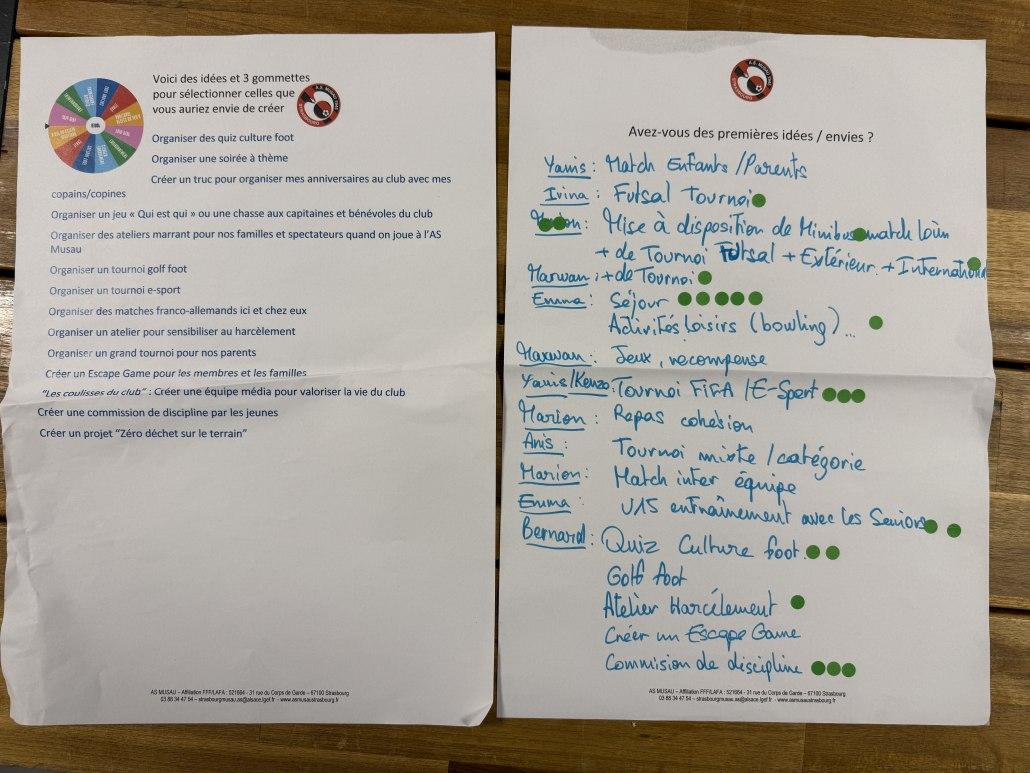 Voici des idées et 3 gommettes
pour sélectionner celles que
vous auriez envie de créer
Organiser des quiz culture foot
Organiser une soirée à thème
Créer un truc pour organiser mes anniversaires au club avec mes
copains/copines
Organiser un jeu « Qui est qui » ou une chasse aux capitaines et bénévoles du club
Organiser des ateliers marrant pour nos familles et spectateurs quand on joue à l'AS
Musau
Organiser un tournoi golf foot
Organiser un tournoi e-sport
Organiser des matches franco-allemands ici et chez eux
Organiser un atelier pour sensibiliser au harcèlement
Organiser un grand tournoi pour nos parents
Créer un Escape Game pour les membres et les familles
"Les coulisses du club" : Créer une équipe média pour valoriser la vie du club
Créer une commission de discipline par les jeunes
Créer un projet "Zéro déchet sur le terrain"
AS MUSAU – Affiliation FFF/LAFA : 521664 - 31 rue du Corps de Garde – 67100 Strasbourg
03 88 34 47 54 – strasbourgmusau.as@alsace.lgef.fr - www.asmusaustrasbourg.fr
A.S. MUSAU
Avez-vous des premières idées / envies ?
Yanis : Match Enfants / Parents
Irina : Futsal Tournoi
Marion : Mise à disposition de Minibus match loin
+ de Tournoi Futsal + Extérieur + International
Marwan : + de Tournoi
Emma : Séjour
Activités Loisirs (bowling) ...
Marwan : Jeux, recompense
Yanis/Kenzo : Tournoi FIFA / E-Sport
Marion : Repas cohésion
Anis : Tournoi mixte / catégorie
Marion : Match inter équipe
Emma : U15 entraînement avec les Seniors
Bernard : Quiz Culture foot
Golf foot
Atelier Harcélement
Créer un Escape Game
Commision de discipline
AS MUSAU – Affiliation FFF/LAFA : 521664 - 31 rue du Corps de Garde – 67100 Strasbourg
03 88 34 47 54 – strasbourgmusau.as@alsace.lgef.fr - www.asmusaustrasbourg.fr